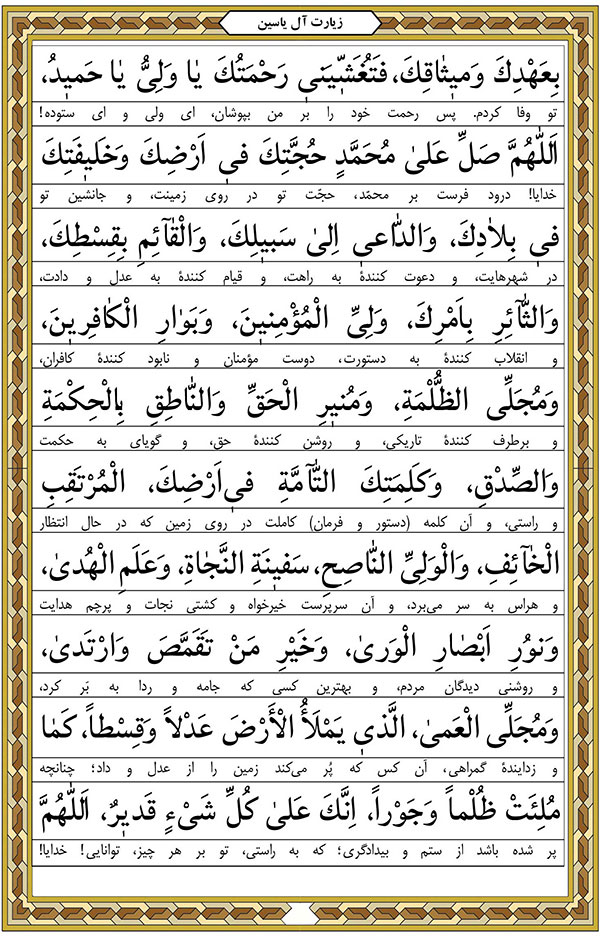 زیارت آل یاسین
بِعَهْدِكَ وَمیثاقِكَ، فَتُغَشّیَنی رَحْمَتُكَ یا وَلِیُّ یا حَمیدُ،
تو وفا کردم. پس رحمت خود را بر من بپوشان، ای ولی و ای ستوده!
اَللّٰهُمَّ صَلِّ عَلیٰ مُحَمَّدٍ حُجَّتِكَ فی اَرْضِكَ وَخَلیفَتِكَ
خدایا! درود فرست بر محمّد، حجّت تو در روی زمینت، و جانشین تو
فی بِلادِكَ، وَالدّاعی اِلیٰ سَبیلِكَ، وَالْقآئِمِ بِقِسْطِكَ،
در شهرهایت، و دعوت کنندهٔ به راهت، و قیام کنندهٔ به عدل و دادت،
وَالثّآئِرِ بِاَمْرِكَ، وَلِیِّ الْمُؤْمِنینَ، وَبَوارِ الْكافِرینَ،
و انقلاب کنندهٔ به دستورت، دوست مؤمنان و نابود کنندهٔ کافران،
وَمُجَلِّی الظُّلْمَةِ، وَمُنیرِ الْحَقِّ وَالنّاطِقِ بِالْحِكْمَةِ
و برطرف کنندهٔ تاریکی، و روشن کنندهٔ حق، و گویای به حکمت
وَالصِّدْقِ، وَكَلِمَتِكَ التّآمَّةِ فی اَرْضِكَ، الْمُرْتَقِبِ
و راستی، و آن کلمه (دستور و فرمان) کاملت در روی زمین که در حال انتظار
الْخآئِفِ، وَالْوَلِیِّ النّاصِحِ، سَفینَةِ النَّجاةِ، وَعَلَمِ الْهُدیٰ،
و هراس به سر می‌برد، و آن سرپرست خیرخواه و کشتی نجات و پرچم هدایت
وَنُورِ اَبْصارِ الْوَریٰ، وَخَیْرِ مَنْ تَقَمَّصَ وَارْتَدیٰ،
و روشنی دیدگان مردم، و بهترین کسی که جامه و ردا به بَر کرد،
وَمُجَلِّی الْعَمیٰ، الَّذی یَمْلَأُ الْأَرْضَ عَدْلاً وَقِسْطاً، كَما
و زدایندهٔ گمراهی، آن کس که پُر می‌کند زمین را از عدل و داد؛ چنانچه
مُلِئَتْ ظُلْماً وَجَوْراً، اِنَّكَ عَلیٰ كُلِّ شَیْءٍ قَدیرٌ، اَللّٰهُمَّ
پر شده باشد از ستم و بیدادگری؛ که به راستی، تو بر هر چیز، توانایی! خدایا!